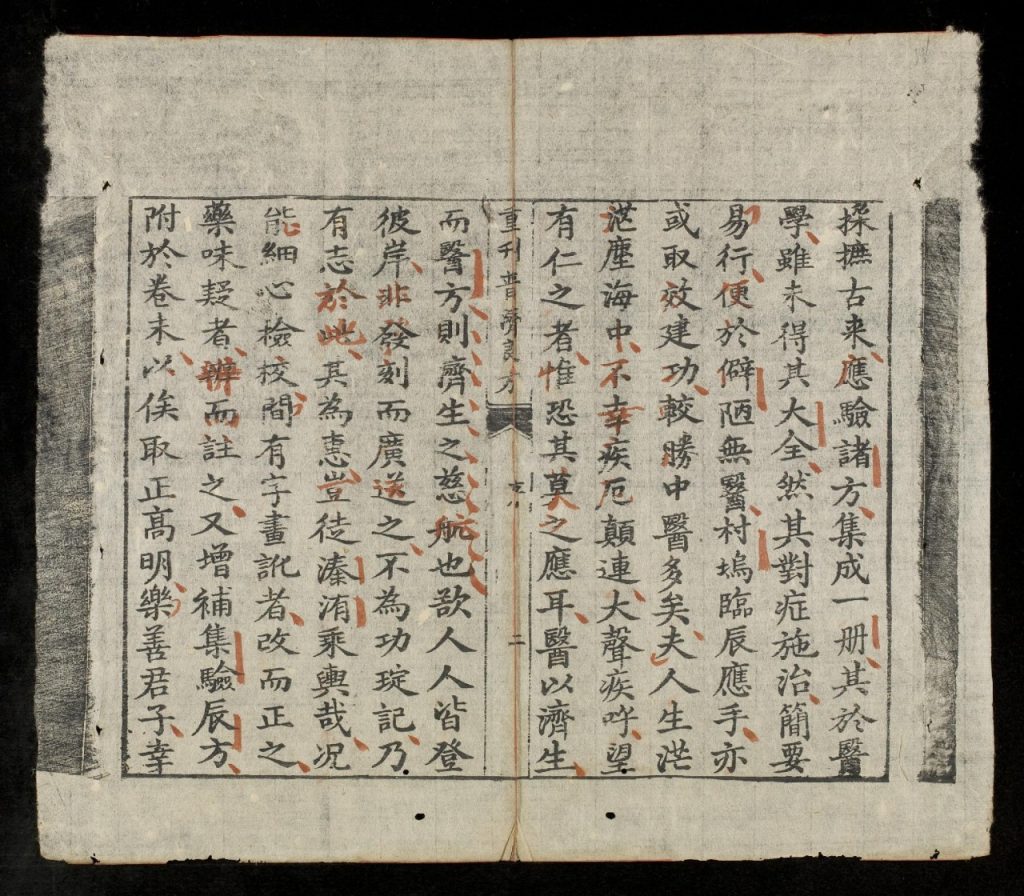 採摭古来應驗諸方集成一册其於醫
學雖未得其大全然其對症施治簡要
易行便於僻陋無醫村塢臨辰應手亦
或取效建功較勝中醫多矣夫人生茫
茫塵海中不幸疾厄顛連大聲疾呼望
有仁之者惟恐其莫之應耳醫以濟生
重刊普濟良方
二
而醫方則濟生之慈航也歆人人皆登
彼岸非發刻而廣送之不為功琔記乃
有志於此其為惠豈徒溱洧乘輿哉况
能細心檢校間有字畫訛者改而正之
藥味疑者辨而註之又增補集驗辰方
附於卷末以俟取正高明樂善君子幸